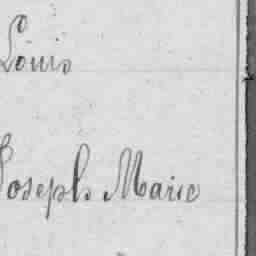 Louis
Joseph Marie